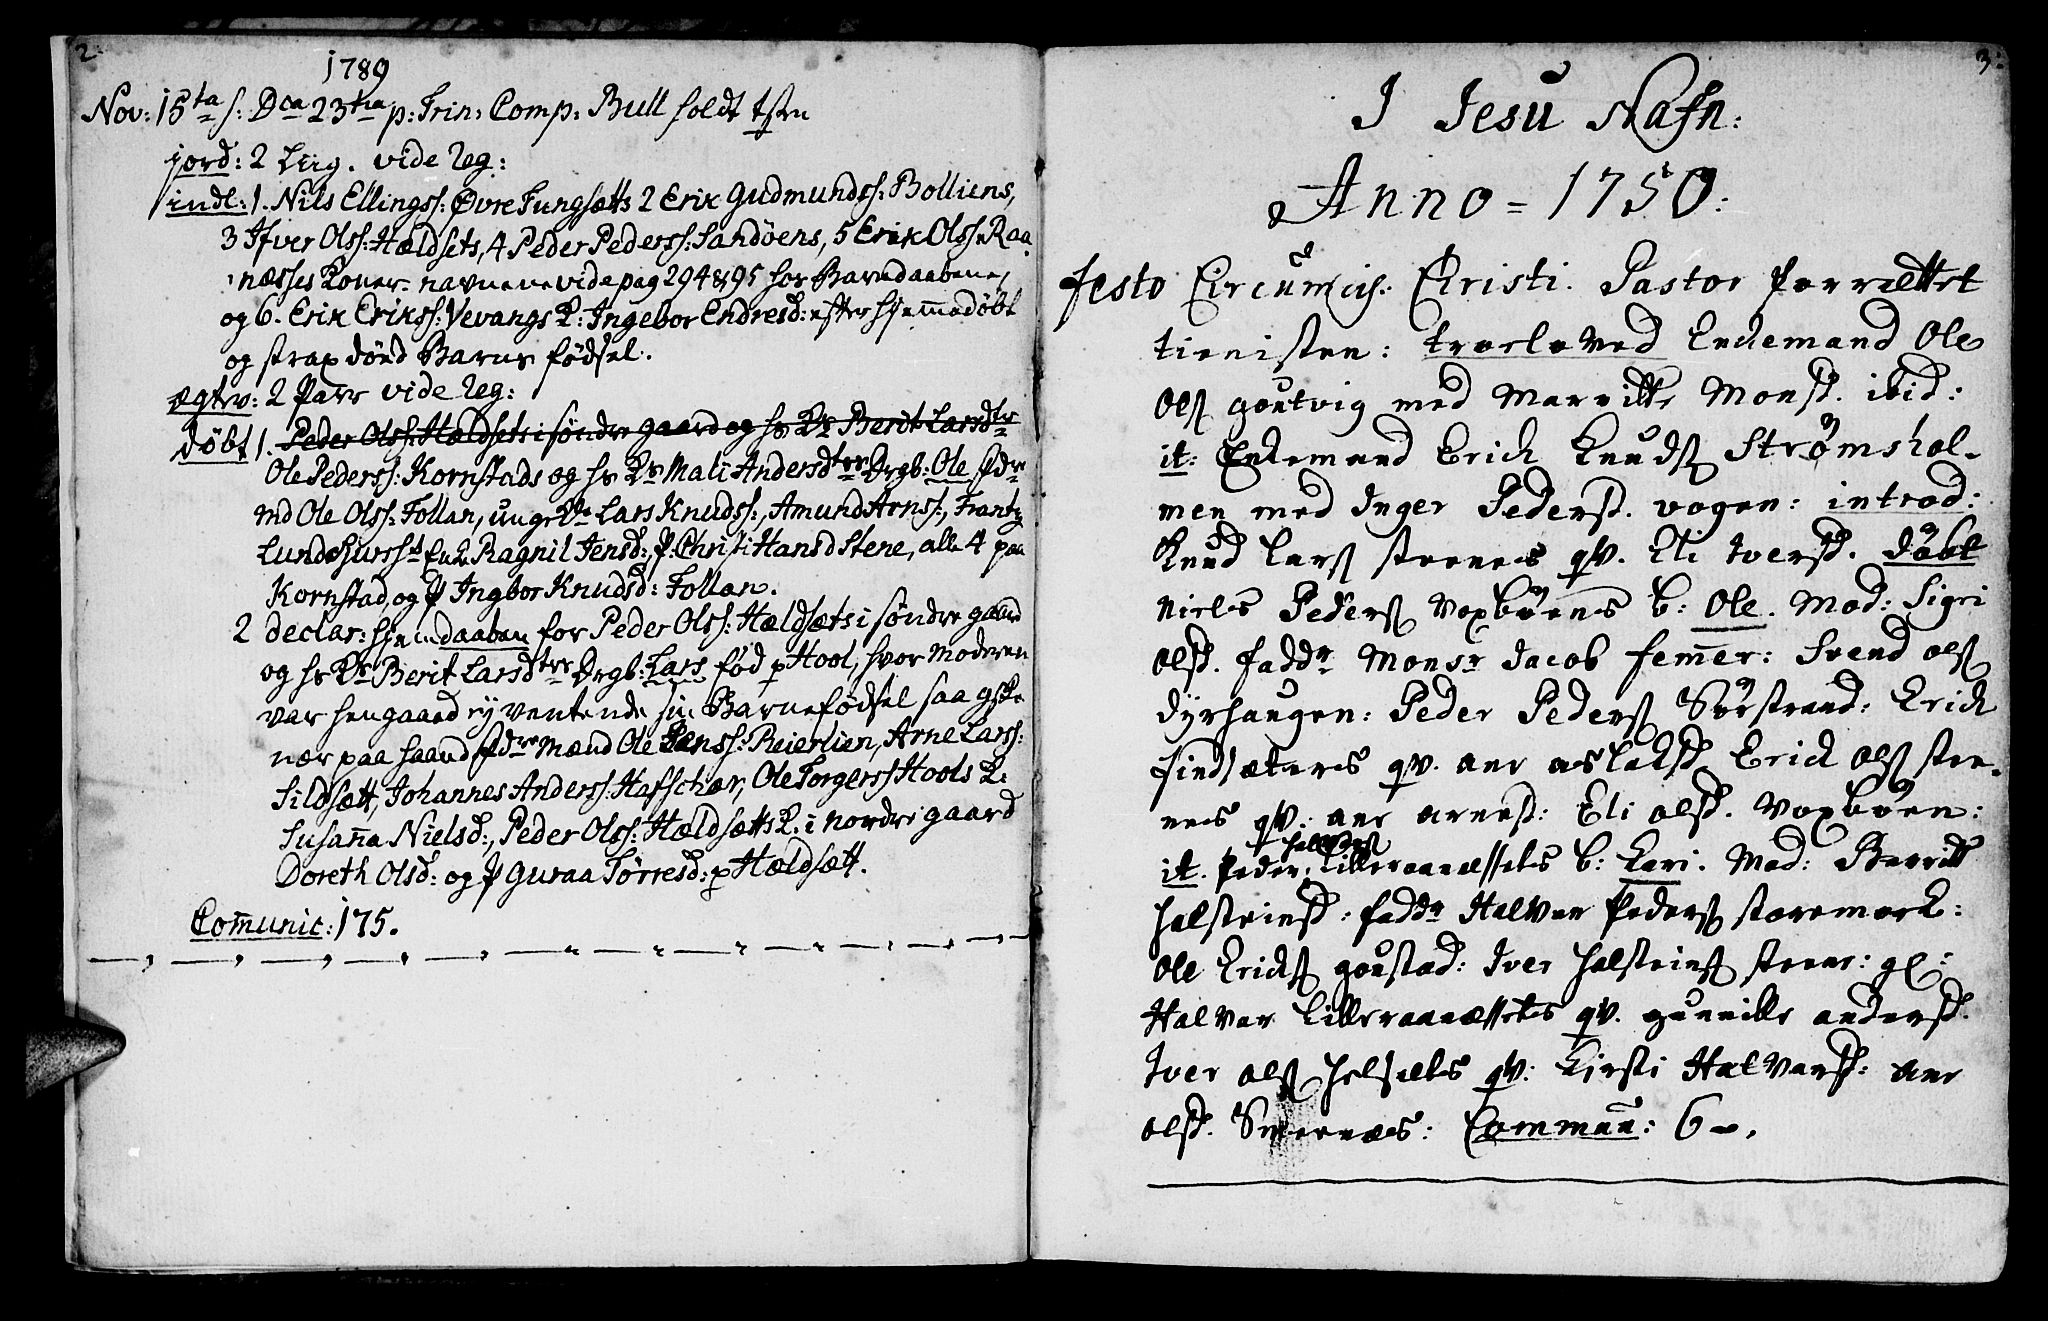 2.
1789
Nov: 15ta s: Dca 23tia p: Trin: Comp: Bull holdt tien
jord: 2 Liig. vide Reg:
indl: 1. Nils Ellingss: Øvre Tungsætts 2 Erik Gudmundss: Bolliens,
3 Ifver Olss: Hældsets, 4 Peder Pederss: Sandöens, 5 Erik Olss: Raa
næsses Koner navnene vide pag 294 & 95 hos Barndaabene,
og 6. Erik Erikss: Vevangs K: Ingebor Endresd: efter hjemmedöbt
og strax död Barns födsel.
ægtev: 2 Parr vide Reg:
döbt 1. Peder Olss: Hældsets i söndre gaard og hs Ks Berit Larsdtrs
Ole Pederss: Kornstads og hs Ks Mali Andersdtrs Drgb: Ole Fdre
Md Ole Olss: Follan, unge Lars Knudss:, Amund Arnss:, Frantz
Enke Ragnil Jensd: P: Christi Hansd Stene, alle 4 paa
Kornstad, og P Ingbor Knudsd: Follan.
2 declar: hjemdaaben for Peder Olss: Hældsæts i söndre gaard
og hs Ks Berit Larsdtrs Drgb: Lars föd p Hool, hvor Moderen
var hengaaed ej ventende sin Barnefödsel saa
nær paa haand Fdre Mænd Ole Jenss: Reierlien, Arne Larss:
Sildsætt, Johannes Anderss: Hafschær, Ole Torgerss Hools K:
Susanna Nielsd:, Peder Olss: Hældsætts K. i nordre gaard
Doreth Olsd: og P Guraa Törresd: p Hældsætt.
Communic: 175.
3:
I Jesu Nafn:
Anno = 1750:
festo Circumcis: Christi. Pastor forrættet
tienisten: troeloved Enckemand Ole
Ols goutvig med Marritte Monsd. ibid:
it: Enkemand Erick Knuds Strømshol-
men med Inger Pedersd. vogen: introd:
Knud Lars steenes qv. Eli Iversd. döbt
Niels Peders Voxböens b: Ole. Mod: Sigri
olsd. faddr Monsr Jacob femmer: Svend ols
Dyrhaugen: Peder Peders Sörstrand: Erick
findsæters qv. ane aslaksd. Erick ols stee-
nes qv. ane arnesd: Eli olsd. Voxböen:
it. Peder Lilleraanæssets b: Kari. Mod: Berritt
Halsteinsd: faddr Halvar Peders storemork:
Ole Ericks goustad: Iver Halsteins steene: gl:
Halvar Lilleraanæssets qv. gunnille andersd.
Iver ols Helsæts qv: Kirsti Halvarsd: ane
olsd. Sveernæs: Commun: 60.